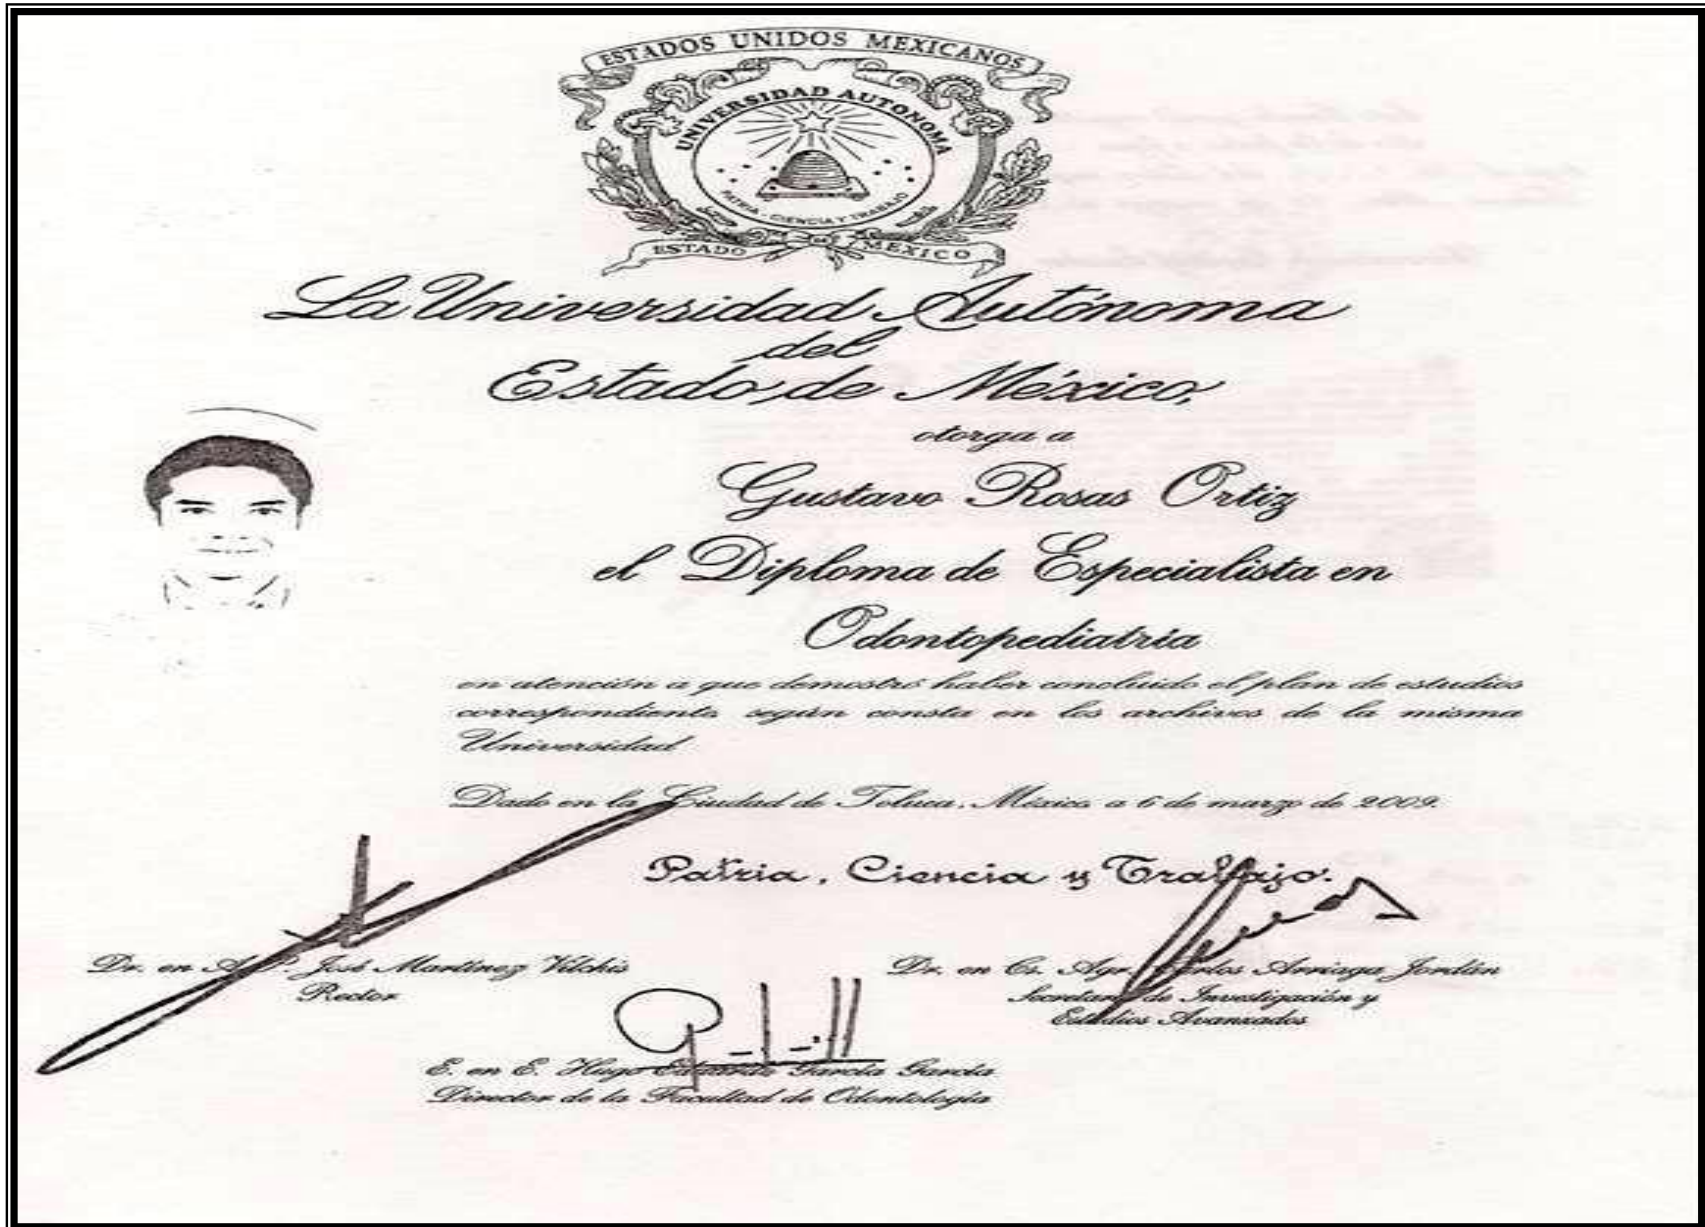 ESTADOS UNIDOS MEXICANOS
UNIVERSIDAD AUTONOMA
PATRIA, CIENCIA Y TRABAJO
ESTADO MEXICO
La Universidad Autónoma
del
Estado de México,
otorga a
Gustavo Rosas Ortiz
el Diploma de Especialista en
Odontopediatría
en atención a que demostró haber concluido el plan de estudios
correspondiente según consta en los archivos de la misma
Universidad
Dado en la Ciudad de Toluca, México a 6 de marzo de 2009.
Patria, Ciencia y Trabajo.
Dr. en A. P. José Martínez Vilchis
Rector
Dr. en Cs. Agr. Carlos Arriaga Jordán
Secretario de Investigación y
Estudios Avanzados
E. en E. Hugo García García
Director de la Facultad de Odontología